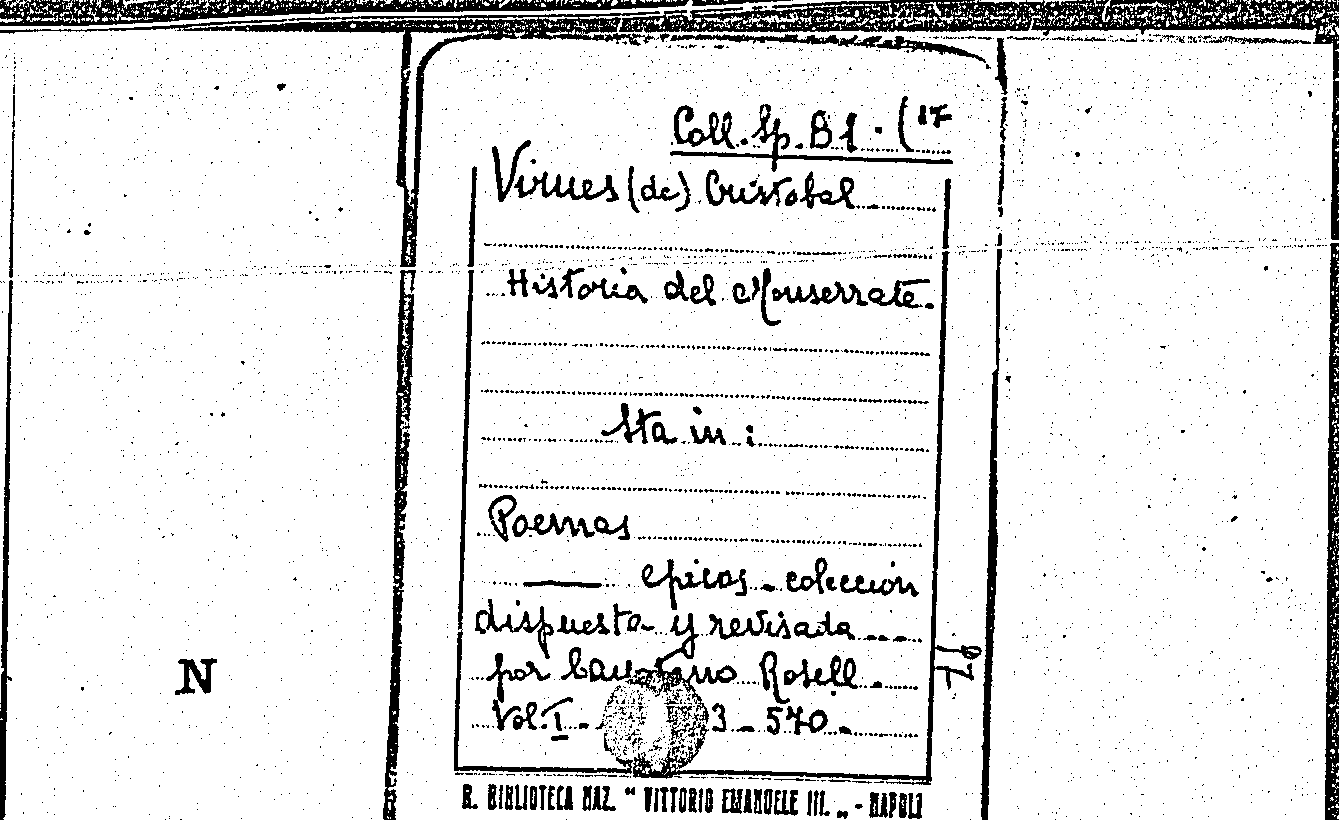 Coll. Sp. B 1 · (17
Virues (de) Cristobal
Historia del Monserrate.
Sta in:
Poemas
—— epicos - colección
dispuesta y revisada
por Cayetano Rosell.
Vol. I - 3 - 570 -
N
R. BIBLIOTECA NAZ. “ VITTORIO EMANUELE III. „ - NAPOLI